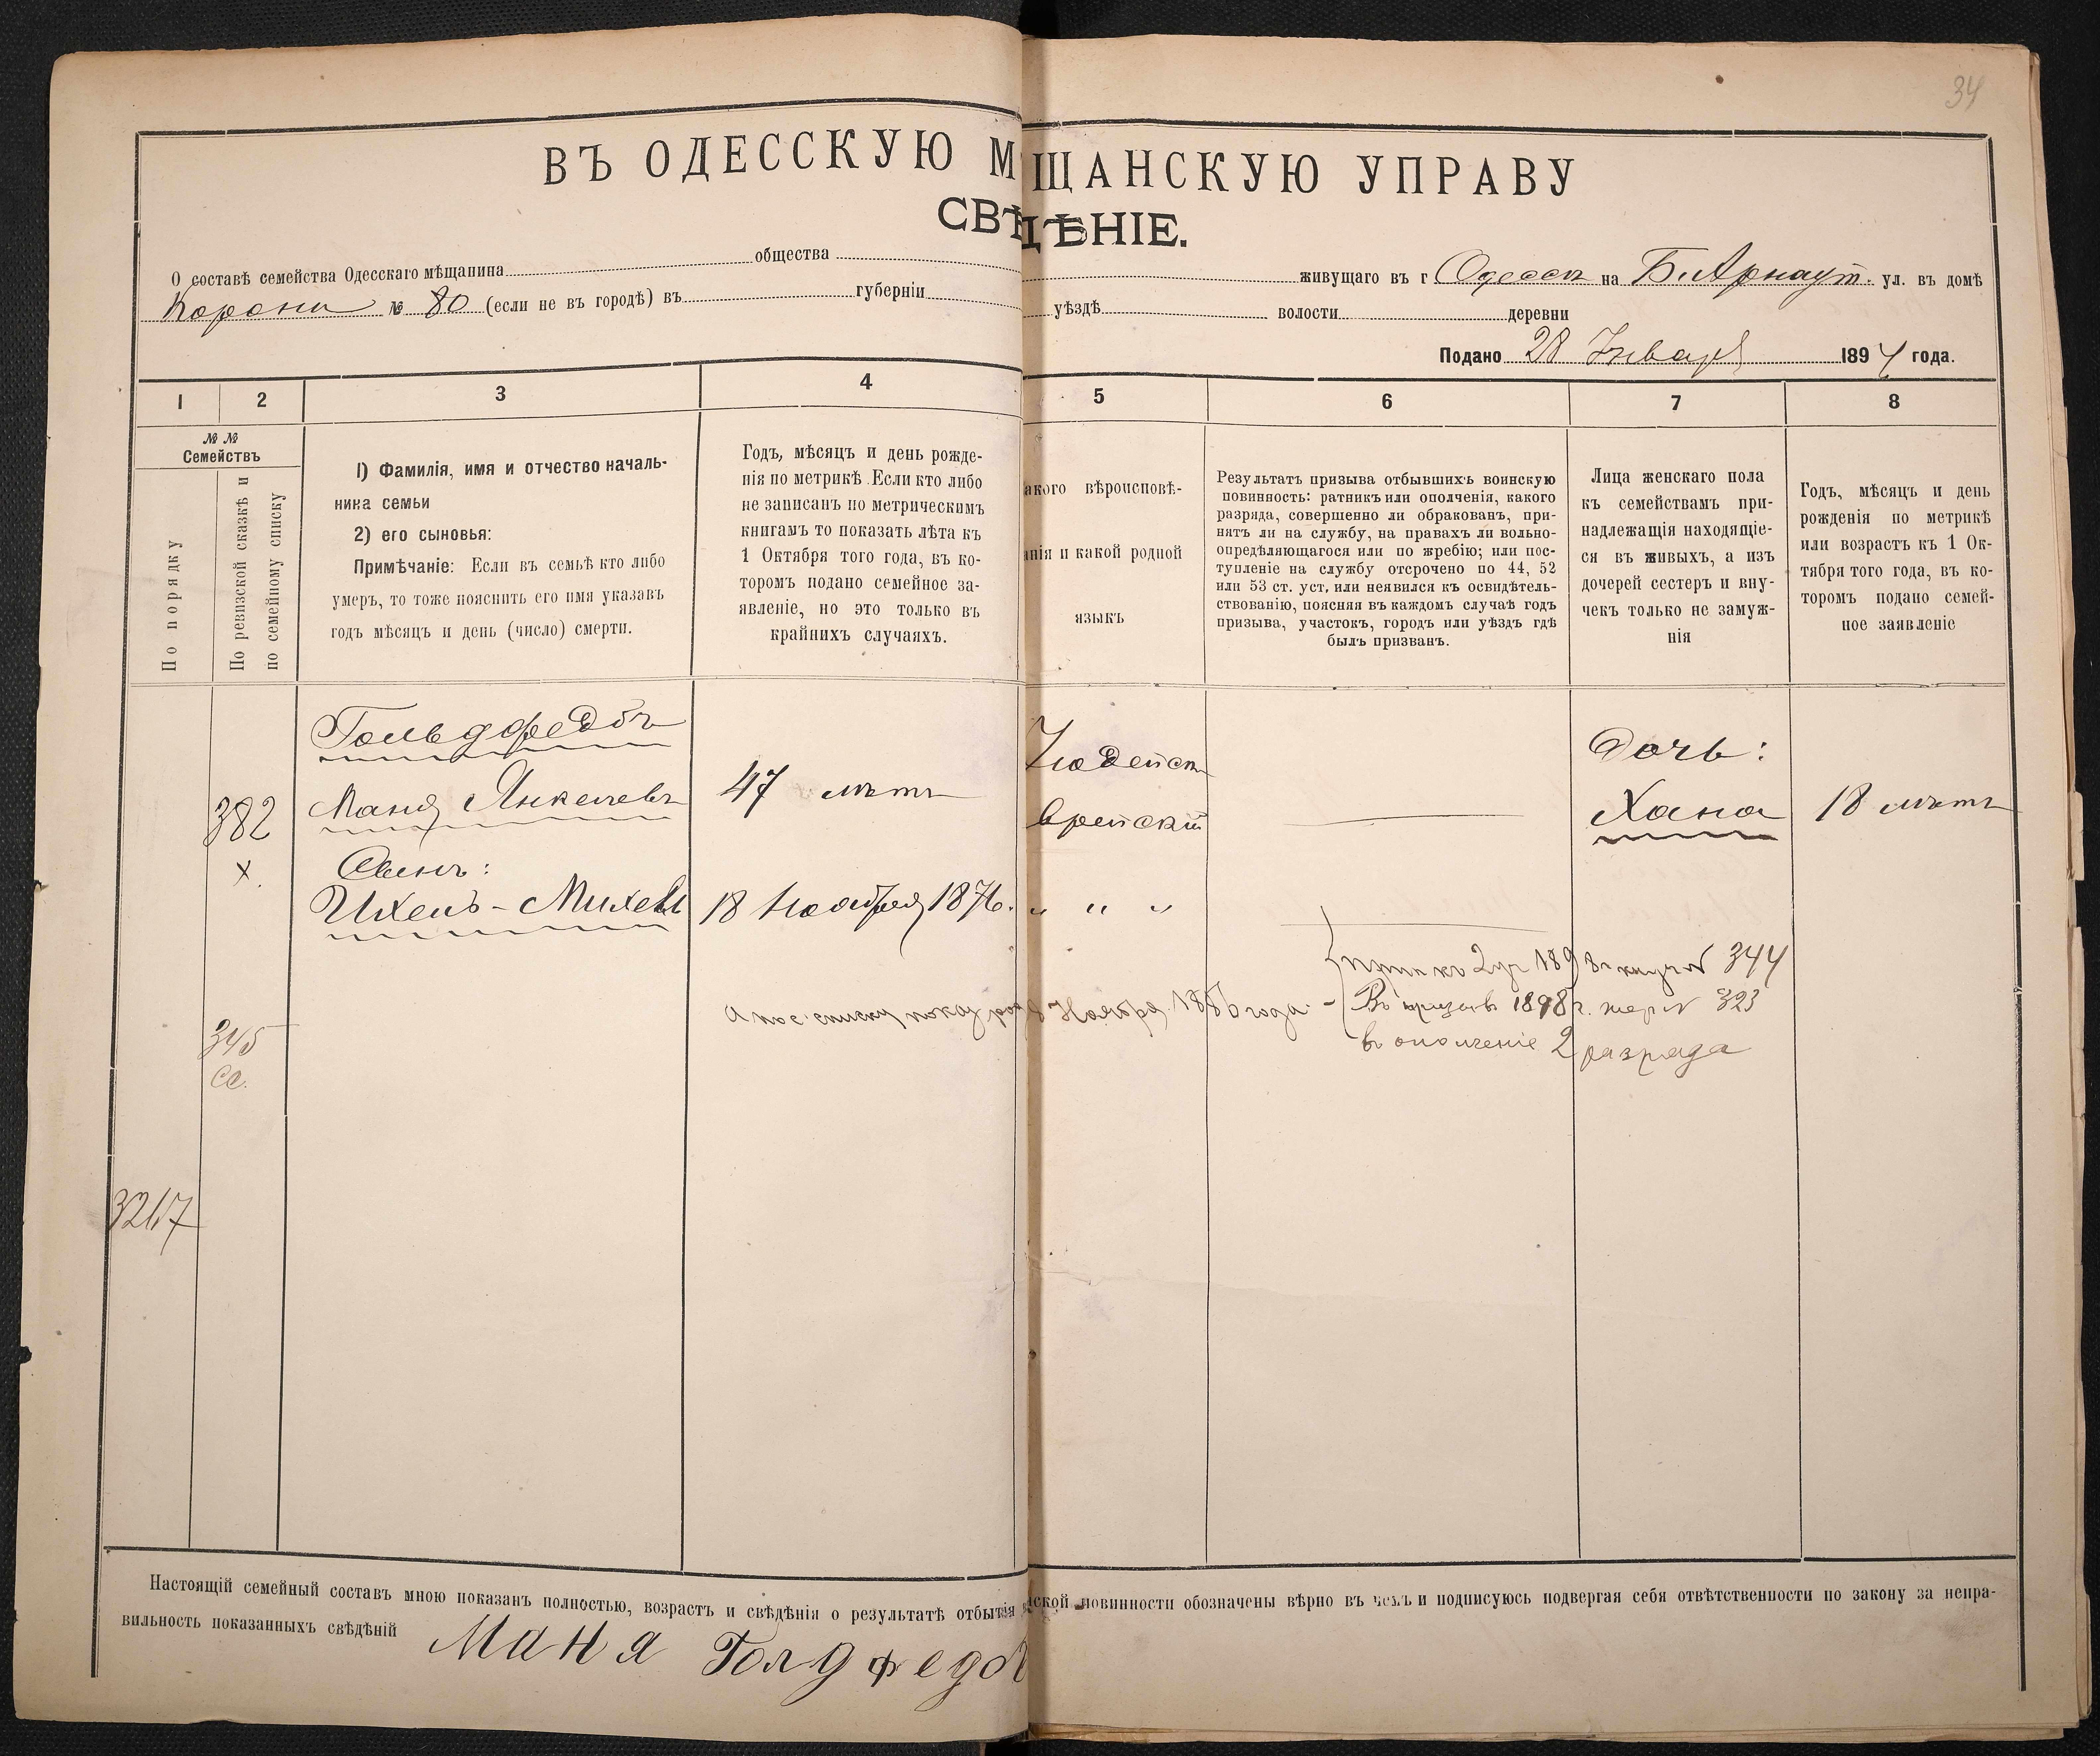 34
ВЪ ОДЕССКУЮ МЩАНСКУЮ УПРАВУ
СВѢДѢНІЕ.
О составѣ семейства Одесскаго мѣщанина общества живущаго въ г Одессѣ на Б. Арнаут. ул. въ домѣ
Корони № 80 (если не въ городѣ) въ губерніи уѣздѣ волости деревни
Подано 28 Января 1894 года.
1 2 3 4 5 6 7 8
№ № Семействъ
По порядку
По ревизской сказкѣ и
по семейному списку
1) Фамилія, имя и отчество началь-
ника семьи
2) его сыновья:
Примѣчаніе: Если въ семьѣ кто либо
умеръ, то тоже пояснить его имя указавъ
годъ мѣсяцъ и день (число) смерти.
Годъ, мѣсяцъ и день рожде-
нія по метрикѣ. Если кто либо
не записанъ по метрическимъ
книгамъ то показать лѣта къ
1 Октября того года, въ ко-
торомъ подано семейное за-
явленіе, но это только въ
крайнихъ случаяхъ.
акого вѣроисповѣ-
анія и какой родной
языкъ
Результатъ призыва отбывшихъ воинскую
повинность: ратникъ или ополченія, какого
разряда, совершенно ли обракованъ, при-
нятъ ли на службу, на правахъ ли вольно-
опредѣляющагося или по жребію; или пос-
тупленіе на службу отсрочено по 44, 52
или 53 ст. уст, или неявился къ освидѣтель-
ствованію, поясняя въ каждомъ случаѣ годъ
призыва, участокъ, городъ или уѣздъ гдѣ
былъ призванъ.
Лица женскаго пола
къ семействамъ при-
надлежащія находящіе-
ся въ живыхъ, а изъ
дочерей сестеръ и вну-
чекъ только не замуж-
нія
Годъ, мѣсяцъ и день
рожденія по метрикѣ
или возрастъ къ 1 Ок-
тября того года, въ ко-
торомъ подано семей-
ное заявленіе
Гольдфедбъ
382 Маня Янкелевъ 47 лѣтъ Іюдейск
врейскій
Дочь:
Хана 18 лѣтъ
х. Сынъ:
Ихель-Михель 18 Ноября 1876. " " "
1898 г. 344
а по с. списку показ Ноября года. - Въ призывъ 1898 г. жер № 323
345 въ ополченіе 2 разряда
сс.
3217
Настоящій семейный составъ мною показанъ полностью, возрастъ и свѣдѣнія о результатѣ отбытія ской повинности обозначены вѣрно въ чемъ и подписуюсь подвергая себя отвѣтственности по закону за непра-
вильность показанныхъ свѣдѣній Маня Голдфедб